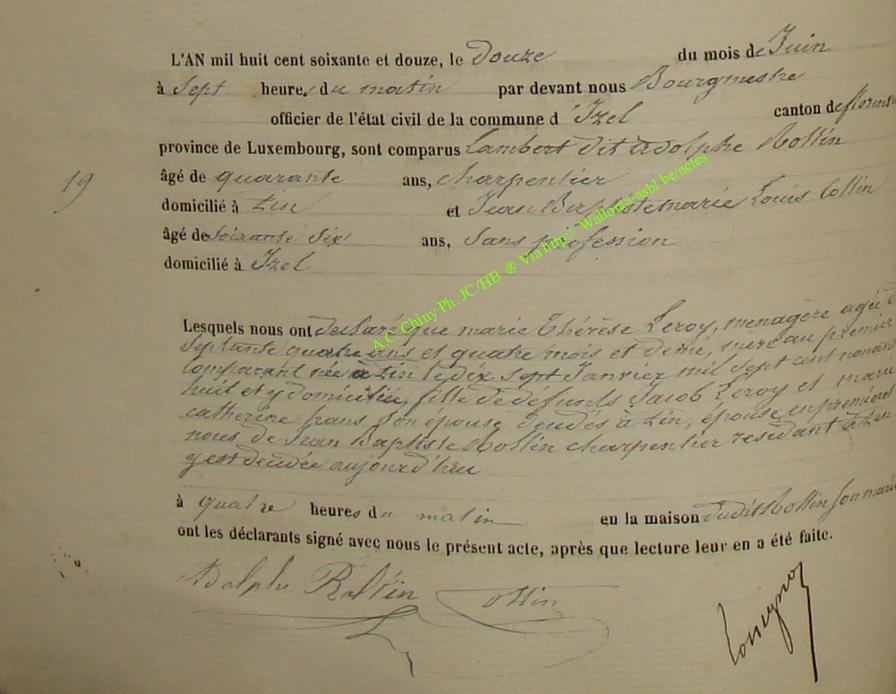 L'AN mil huit cent soixante et douze, le douze du mois de Juin
à Sept heures du matin par devant nous Bourgmestre
officier de l'état civil de la commune d'Izel canton de florenv
province de Luxembourg, sont comparus Lambert dit adolphe Rollin
19 âgé de quarante ans, charpentier
domicilié à Pin et Jean Baptiste marie Louis Collin
âgé de soixante Six ans, Sans profession
domicilié à Izel
A.C. Chiny Ph. JC/HB ® Via http// Wallonia-asbl.be/actes
Lesquels nous ont declaré que marie Thérèse Leroy, menagère agée d
septante quatre ans et quatre mois et demi, mère au premier
comparant née à Pin le dix sept Janvier mil sept cent nonant
huit et y domiciliée, fille de defunts Jacob Leroy et marie
catherine frans son épouse decedés à Pin, épouse en premières
noces de Jean Baptiste Rollin charpentier residant à Pin
y est decedée aujourd'hui
à quatre heures du matin en la maison dudit Rollin son mari
ont les déclarants signé avec nous le présent acte, après que lecture leur en a été faite.
Adolphe Rollin Collin